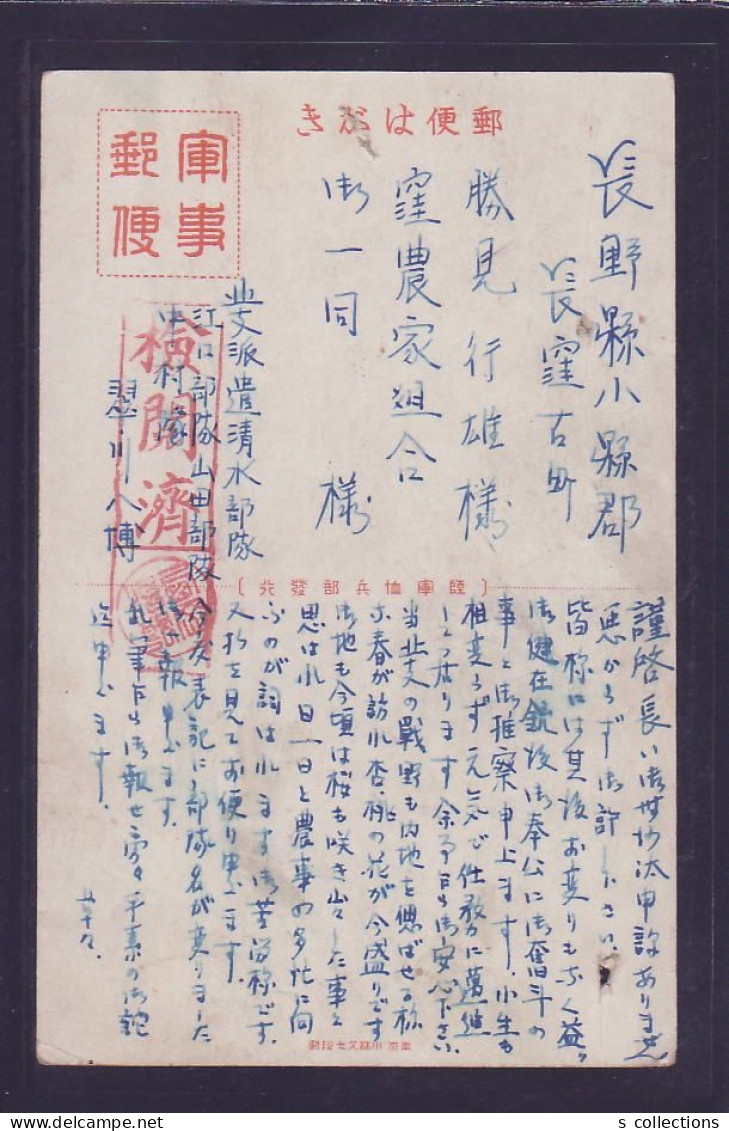 郵便はがき
軍事
郵便
長野縣小縣郡
長窪古町
勝見行雄様
窪農家組合
御一同様
北支派遣清水部隊
江口部隊山田部隊
中村隊
翠川八博
検閲済
〔陸軍恤兵部發行〕
謹啓長い御無沙汰申訳ありません
悪からず御許し下さい
皆様には其後お変りもなく益々
御健在銃後御奉公に御奮斗の
事と御推察申上ます、小生も
相変らず元気で任務に邁進
しつゝ居ります余事乍ら御安心下さい
当北支の戦野も内地を偲ばせる様
な春が訪れ杏、桃の花が今盛りです
御地も今頃は桜も咲き出した事と
思はれ日一日と農事の多忙に向
ふのが
を見てお便り申します。
今度表記に部隊名が変りました
御一報申します。
乱筆乍ら御報せ旁々平素の御詫
迄申します。
s collections